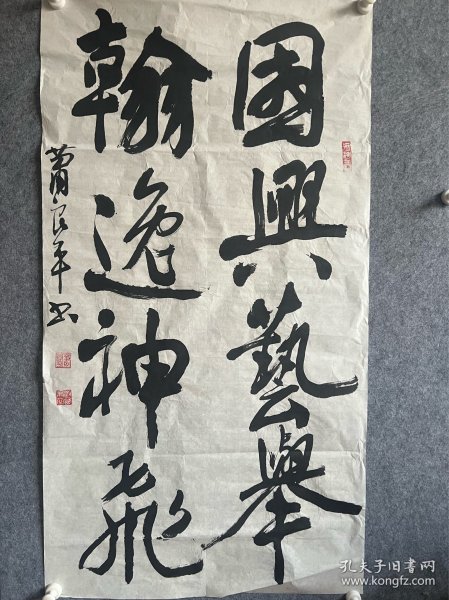 國興藝舉
翰逸神飛
蕭良平书
孔夫子旧书网
www.kongfz.com